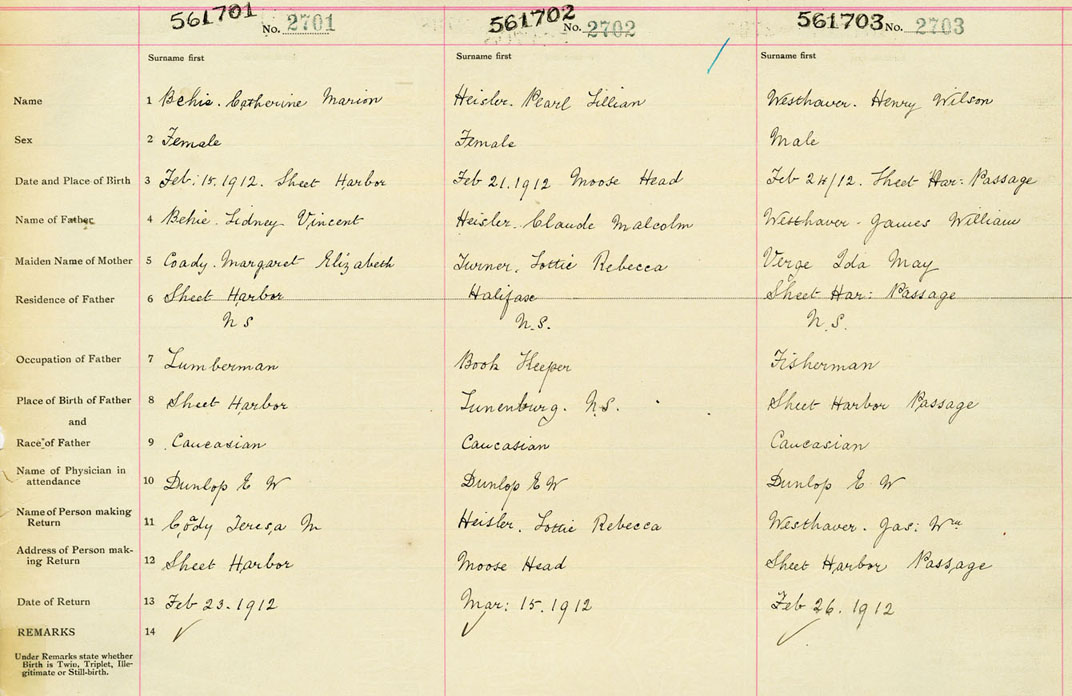 561701 No. 2701 561702 No. 2702 561703 No. 2703
Surname first Surname first Surname first
Name 1 Behie. Catherine Marion Heisler. Pearl Lillian Westhaver. Henry Wilson
Sex 2 Female Female Male
Date and Place of Birth 3 Feb. 15. 1912. Sheet Harbor Feb 21. 1912 Moose Head Feb 24/12. Sheet Har: Passage
Name of Father 4 Behie. Sidney Vincent Heisler. Claude Malcolm Westhaver. James William
Maiden Name of Mother 5 Coady. Margaret Elizabeth Turner. Lottie Rebecca Verge Ida May
Residence of Father 6 Sheet Harbor Halifax Sheet Har: Passage
N S N.S. N.S.
Occupation of Father 7 Lumberman Book Keeper Fisherman
Place of Birth of Father 8 Sheet Harbor Lunenburg. N.S. Sheet Harbor Passage
and
Race of Father 9 Caucasian Caucasian Caucasian
Name of Physician in
attendance 10 Dunlop E W Dunlop E W Dunlop E W
Name of Person making
Return 11 Coady Teresa M Heisler. Lottie Rebecca Westhaver. Jas: Wm
Address of Person mak-
ing Return 12 Sheet Harbor Moose Head Sheet Harbor Passage
Date of Return 13 Feb 23. 1912 Mar: 15. 1912 Feb 26. 1912
REMARKS 14 ✓ ✓ ✓
Under Remarks state whether
Birth is Twin, Triplet, Ille-
gitimate or Still-birth.